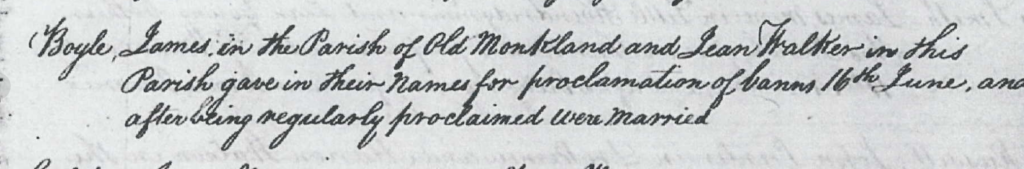 Boyle, James, in the Parish of Old Monkland and Jean Walker in this
Parish gave in their Names for proclamation of banns 16th June, and
after being regularly proclaimed were Married